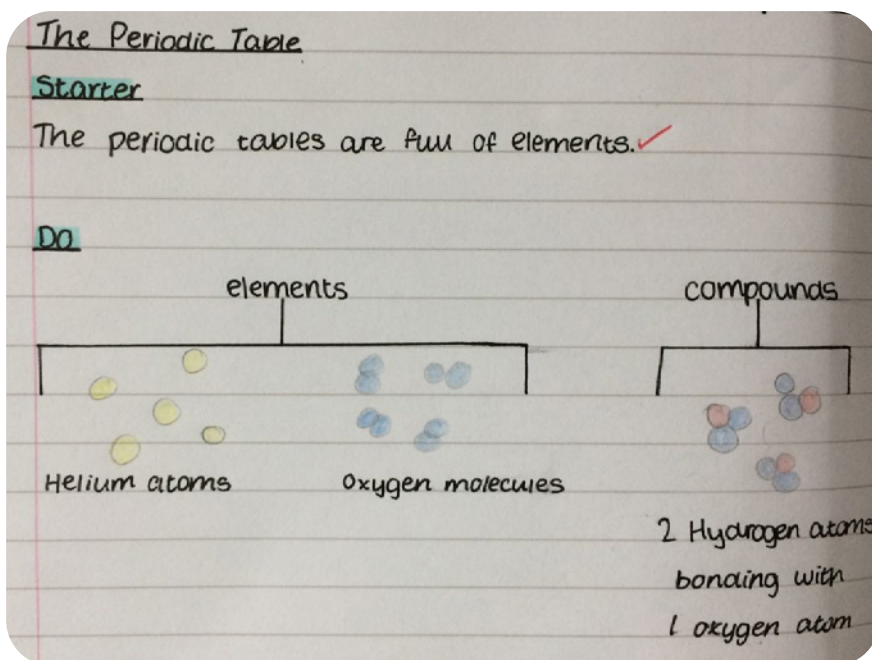 The Periodic Table
Starter
The periodic tables are full of elements.
Do
elements compounds
Helium atoms Oxygen molecules
2 Hydrogen atoms
bonding with
1 oxygen atom